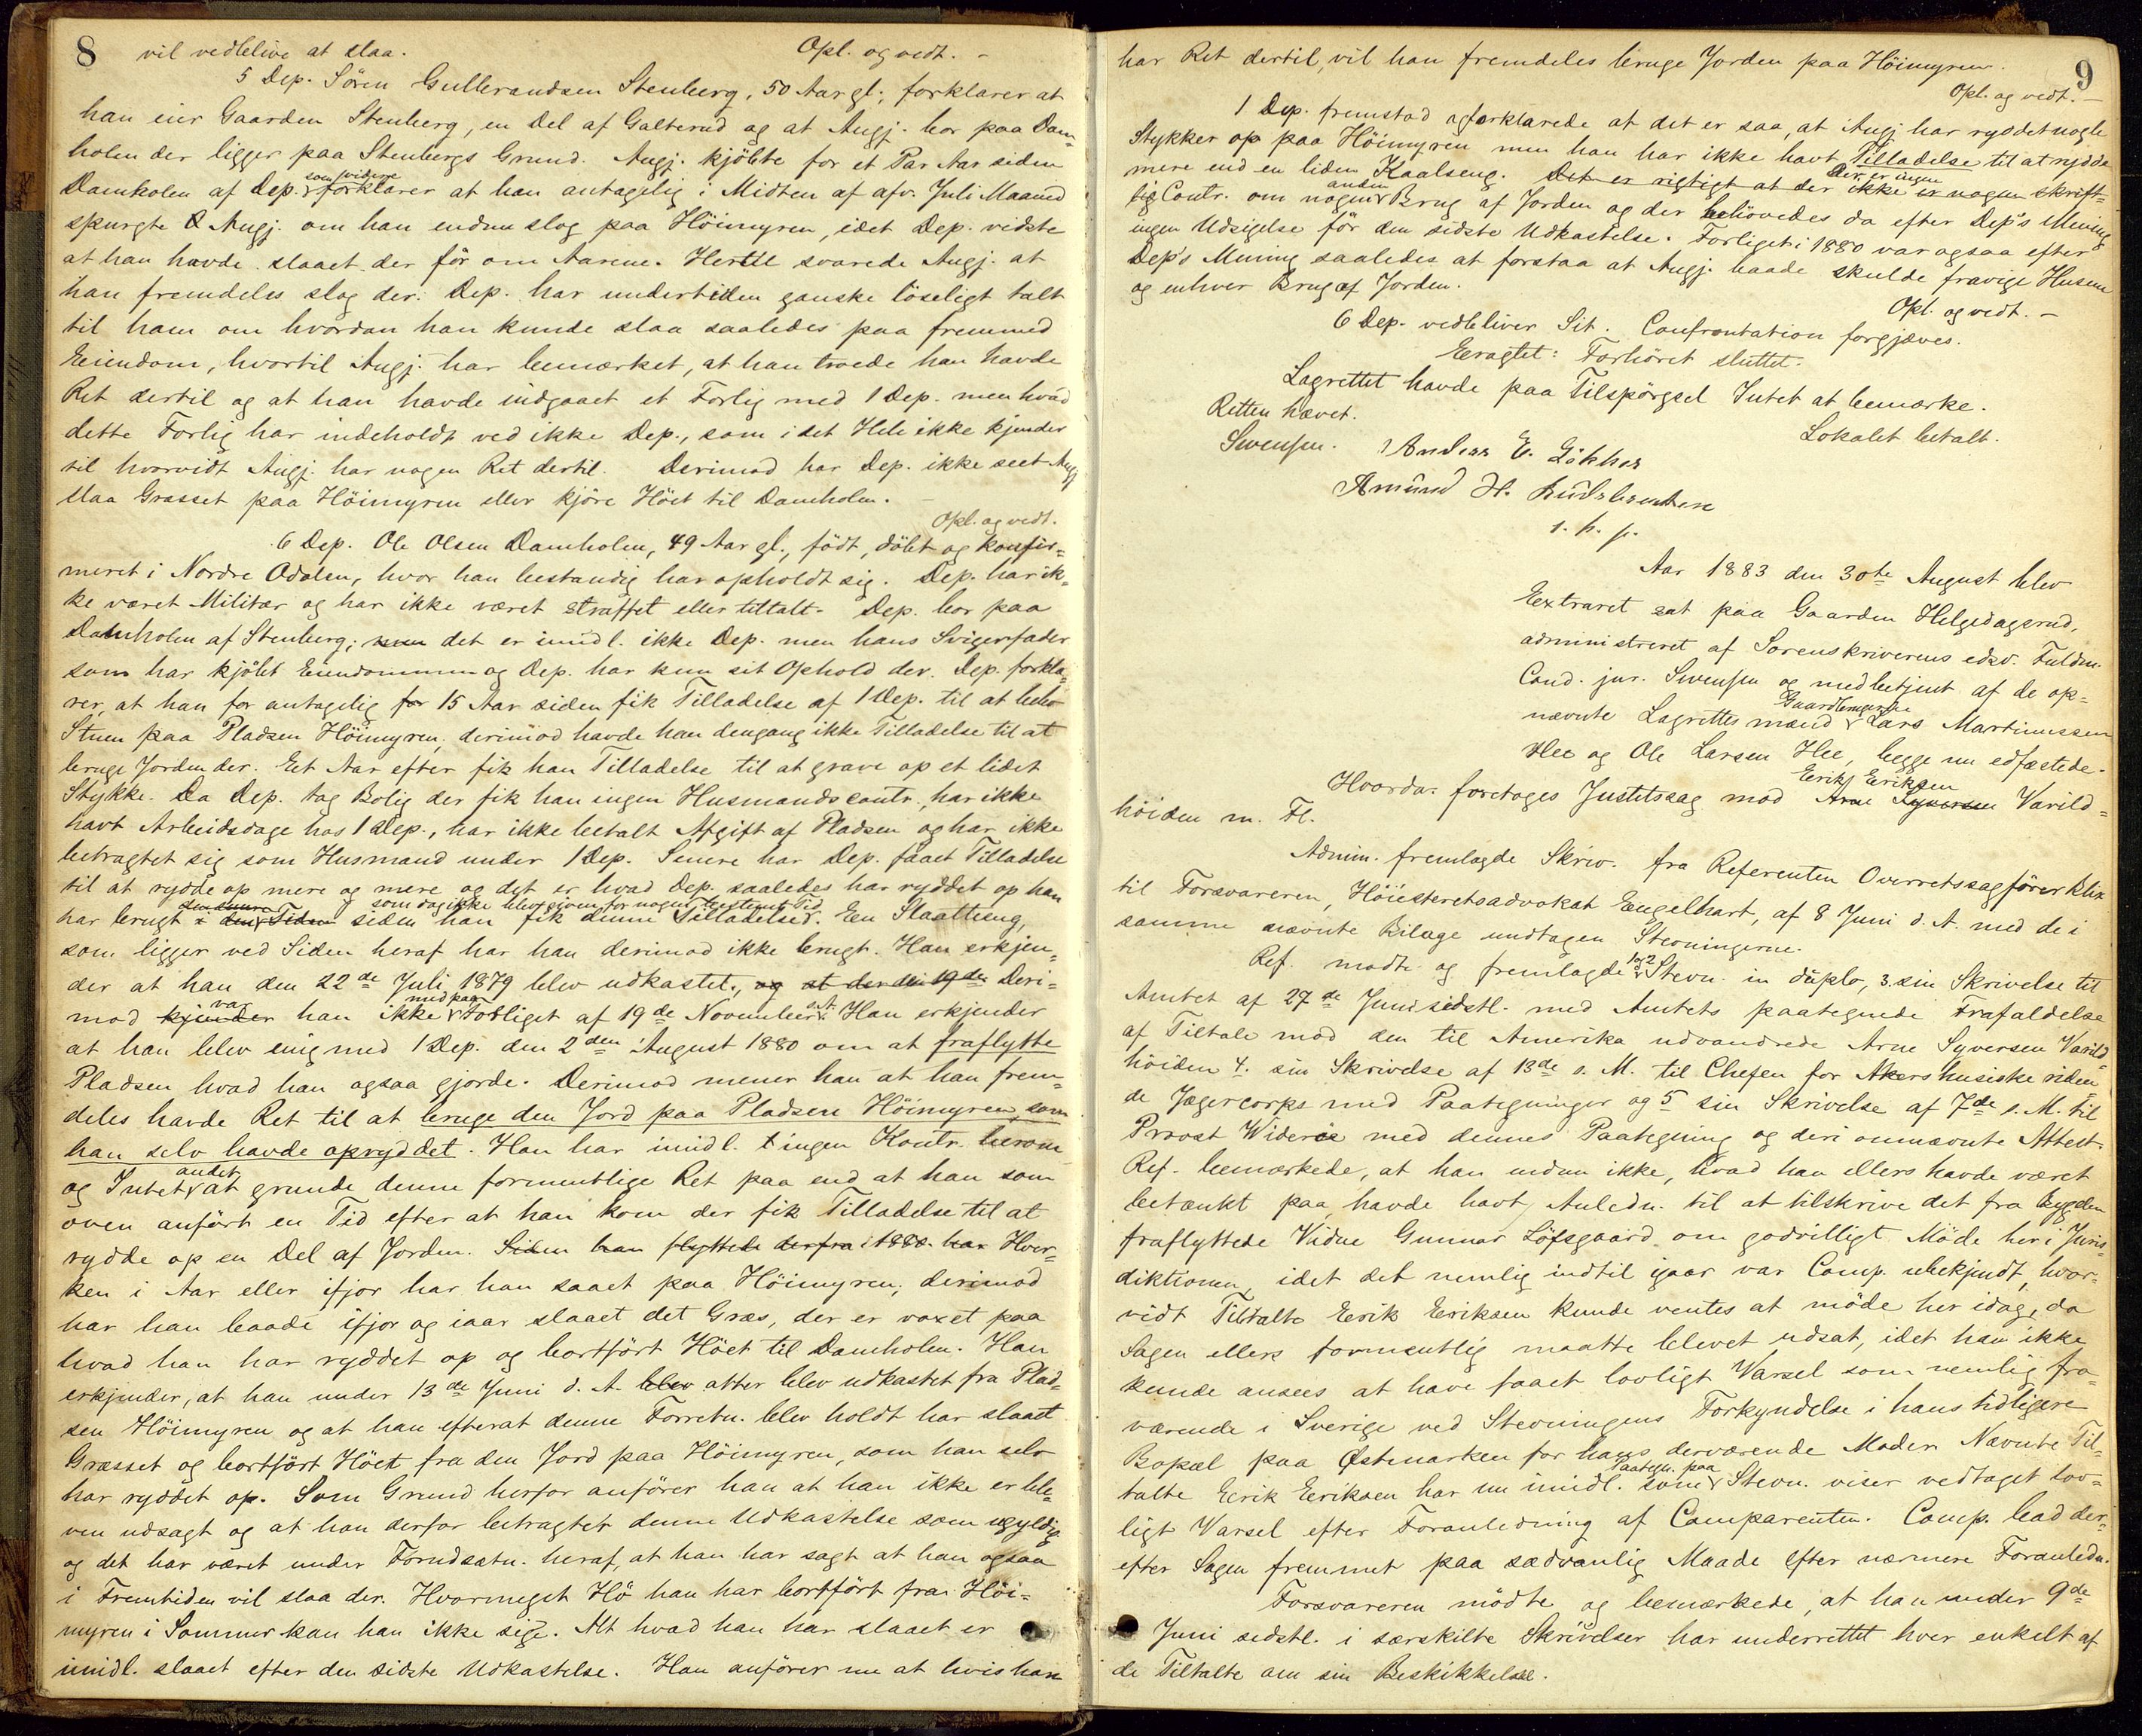 8 vil vedblive at slaa. Opl. og vedt. -
5 Dep. Sören Gulbrandsen Stenberg, 50 Aar gl., forklarer at
han eier Gaarden Stenberg, en Del af Galterud og at Angj. bor paa Dam=
holen der ligger paa Stenbergs Grund. Angj. kjöbte for et Par Aar siden
Damholen af Dep. som videre forklarer at han antagelig i Midten af afv. Juli Maaned
spurgte Angj. om han endnu slog paa Höimyren, idet Dep. vidste
at han havde slaaet der för om Aarene. Hertil svarede Angj. at
han fremdeles slog der. Dep. har undertiden ganske löseligt talt
til ham om hvordan han kunde slaa saaledes paa fremmed
Eiendom, hvortil Angj. har bemærket, at han troede han havde
Ret dertil og at han havde indgaaet et Forlig med 1 Dep. men hvad
dette Forlig har indeholdt ved ikke Dep., som i det Hele ikke kjender
til hvorvidt Angj. har nogen Ret dertil. Derimod har Dep. ikke seet Angj
slaa Græsset paa Höimyren eller kjöre Höet til Damholen. -
Opl. og vedt.
6 Dep. Ole Olsen Damholen, 49 Aar gl., födt, döbt og konfir=
meret i Nordre Odalen, hvor han bestandig har opholdt sig. Dep. har ik=
ke været Militær og har ikke været straffet eller tiltalt. Dep. bor paa
Damholen af Stenberg; men det er imidl. ikke Dep. men hans Svigerfader
som har kjöbt Eiendommen og Dep. har kun sit Ophold der. Dep. forkla=
rer, at han for antagelig for 15 Aar siden fik Tilladelse af 1 Dep. til at bebo
Stuen paa Pladsen Höimyren, derimod havde han dengang ikke Tilladelse til at
bruge Jorden der. Eet Aar efter fik han Tilladelse til at grave op et lidet
Stykke. Da Dep. tog Bolig der fik han ingen Husmandscontr., har ikke
havt Arbeidsdage hos 1 Dep., har ikke betalt Afgift af Pladsen og har ikke
betragtet sig som Husmand under 1 Dep. Senere har Dep. faaet Tilladelse
til at rydde op mere og mere og det er hvad Dep. saaledes har ryddet op han
som dog ikke blev given for nogen bestemt Tid
har brugt i den Tiden siden han fik denne Tilladelse. En Slaatteeng,
som ligger ved Siden heraf har han derimod ikke brugt. Han erkjen=
der at han den 22de Juli 1879 blev udkastet, og at der den 19de Deri=
var med paa
mod kjender han ikke Forliget af 19de November s. A. Han erkjender
at han blev enig med 1 Dep. den 2den August 1880 om at fraflytte
Pladsen hvad han ogsaa gjorde. Derimod mener han at han frem=
deles havde Ret til at bruge den Jord paa Pladsen Höimyren som
han selv havde opryddet. Han har imidl. ingen Kontr. herom
og Intet andet at grunde denne formentlige Ret paa end at han som
oven anfört en Tid efter at han kom der fik Tilladelse til at
rydde op en Del af Jorden. Siden han flyttede derfra i 1880 har Hver=
ken i Aar eller ifjor har han saaet paa Höimyren; derimod
har han baade ifjor og iaar slaaet det Græs, der er voxet paa
hvad han har ryddet op og bortfört Höet til Damholen. Han
erkjender, at han under 13de Juni d. A. blev atter blev udkastet fra Plad=
sen Höimyren og at han efterat denne Forretn. blev holdt har slaaet
Græsset og bortfört Höet fra den Jord paa Höimyren, som han selv
har ryddet op. Som Grund herfor anförer han at han ikke er ble=
ven udsagt og at han derfor betragter denne Udkastelse som ugyldig
og det har været under Forudsætn. heraf, at han har sagt at han ogsaa
i Fremtiden vil slaa der. Hvormeget Hö han har bortfört fra Höi=
myren i Sommer kan han ikke sige. Alt hvad han har slaaet er
imidl. slaaet efter den sidste Udkastelse. Han anförer nu at hvis han
9
har Ret dertil, vil han fremdeles bruge Jorden paa Höimyren.
Opl. og vedt. -
1 Dep. fremstod og forklarede at det er saa, at Angj har ryddet nogle
Stykker op paa Höimyren men han har ikke havt Tilladelse til at rydde
mere end en liden Kaalseng. Det er rigtigt at der ikke er nogen Der er ingen skrift=
lig Contr. om nogen anden Brug af Jorden og der behövedes da efter Dep's Mening
ingen Udsigelse för den sidste Udkastelse. Forliget i 1880 var ogsaa efter
Dep's Mening saaledes at forstaa at Angj. baade skulde fravige Husene
og enhver Brug af Jorden.
Opl. og vedt. -
6 Dep. vedbliver Sit. Confrontation forgjæves.
Eragtet: Forhöret sluttet.
Lagrettet havde paa Tilspörgsel Intet at bemærke.
Retten hævet. Lokalet betalt.
Swensen. Anders E.
Amund H.
1. h. p.
Aar 1883 den 30te August blev
Extraret sat paa Gaarden Helgedagsrud,
administreret af Sorenskriverens edsv. Fuldm.
Cand. jur. Swensen og medbetjent af de op=
nævnte Lagrettesmænd Gaardbrugerne Lars Martinussen
Hee og Ole Larsen Hee, begge nu edfæstede.
Hvorda: foretoges Justitssag mod Arne Syversen Eerik Eeriksen Varild=
höiden m. Fl.
Admin. fremlagde Skriv. fra Referenten Overretssagförer Klix
til Forsvareren, Höiesteretsadvokat Engelhart, af 8 Juni d. A. med de i
samme nævnte Bilage undtagen Stevningerne.
Ref. mødte og fremlagde 1 og 2 Stevn. in duplo, 3. sin Skrivelse til
Amtet af 27de Juni sidstl. med Amtets paategnede Frafaldelse
af Tiltale mod den til Amerika udvandrede Arne Syversen Varild=
höiden 4. sin Skrivelse af 13de s. M. til Chefen for Akershusiske riden=
de Jægercorps med Paategninger og 5 sin Skrivelse af 7de s. M. til
Provst Wideröe med dennes Paategning og deri omnævnte Attest.
Ref. bemærkede, at han endnu ikke, hvad han ellers havde været
betænkt paa, havde havt Anledn. til at tilskrive det fra Bygden
fraflyttede Vidne Gunnar Löfsgaard om godvilligt Möde her i Juris=
diktionen, idet det nemlig indtil igaar var Comp. ubekjendt, hvor=
vidt Tiltalte Eerik Eeriksen kunde ventes at möde her idag, da
Sagen ellers formentlig maatte blevet udsat, idet han ikke
kunde ansees at have faaet lovligt Varsel som nemlig fra=
værende i Sverige ved Stevningens Forkyndelse i hans tidligere
Bopæl paa Østmarken for hans derværende Moder. Nævnte Til=
talte Eerik Eeriksen har nu imidl. som Paategn. paa Stevn. viser vedtaget lov=
ligt Varsel efter Foranledning af Comparenten. Comp. bad der=
efter Sagen fremmet paa sædvanlig Maade efter nærmere Foranledn.
Forsvareren mödte og bemærkede, at han under 9de
Juni sidstl. i særskilte Skrivelser har underrettet hver enkelt af
de Tiltalte om sin Beskikkelse.